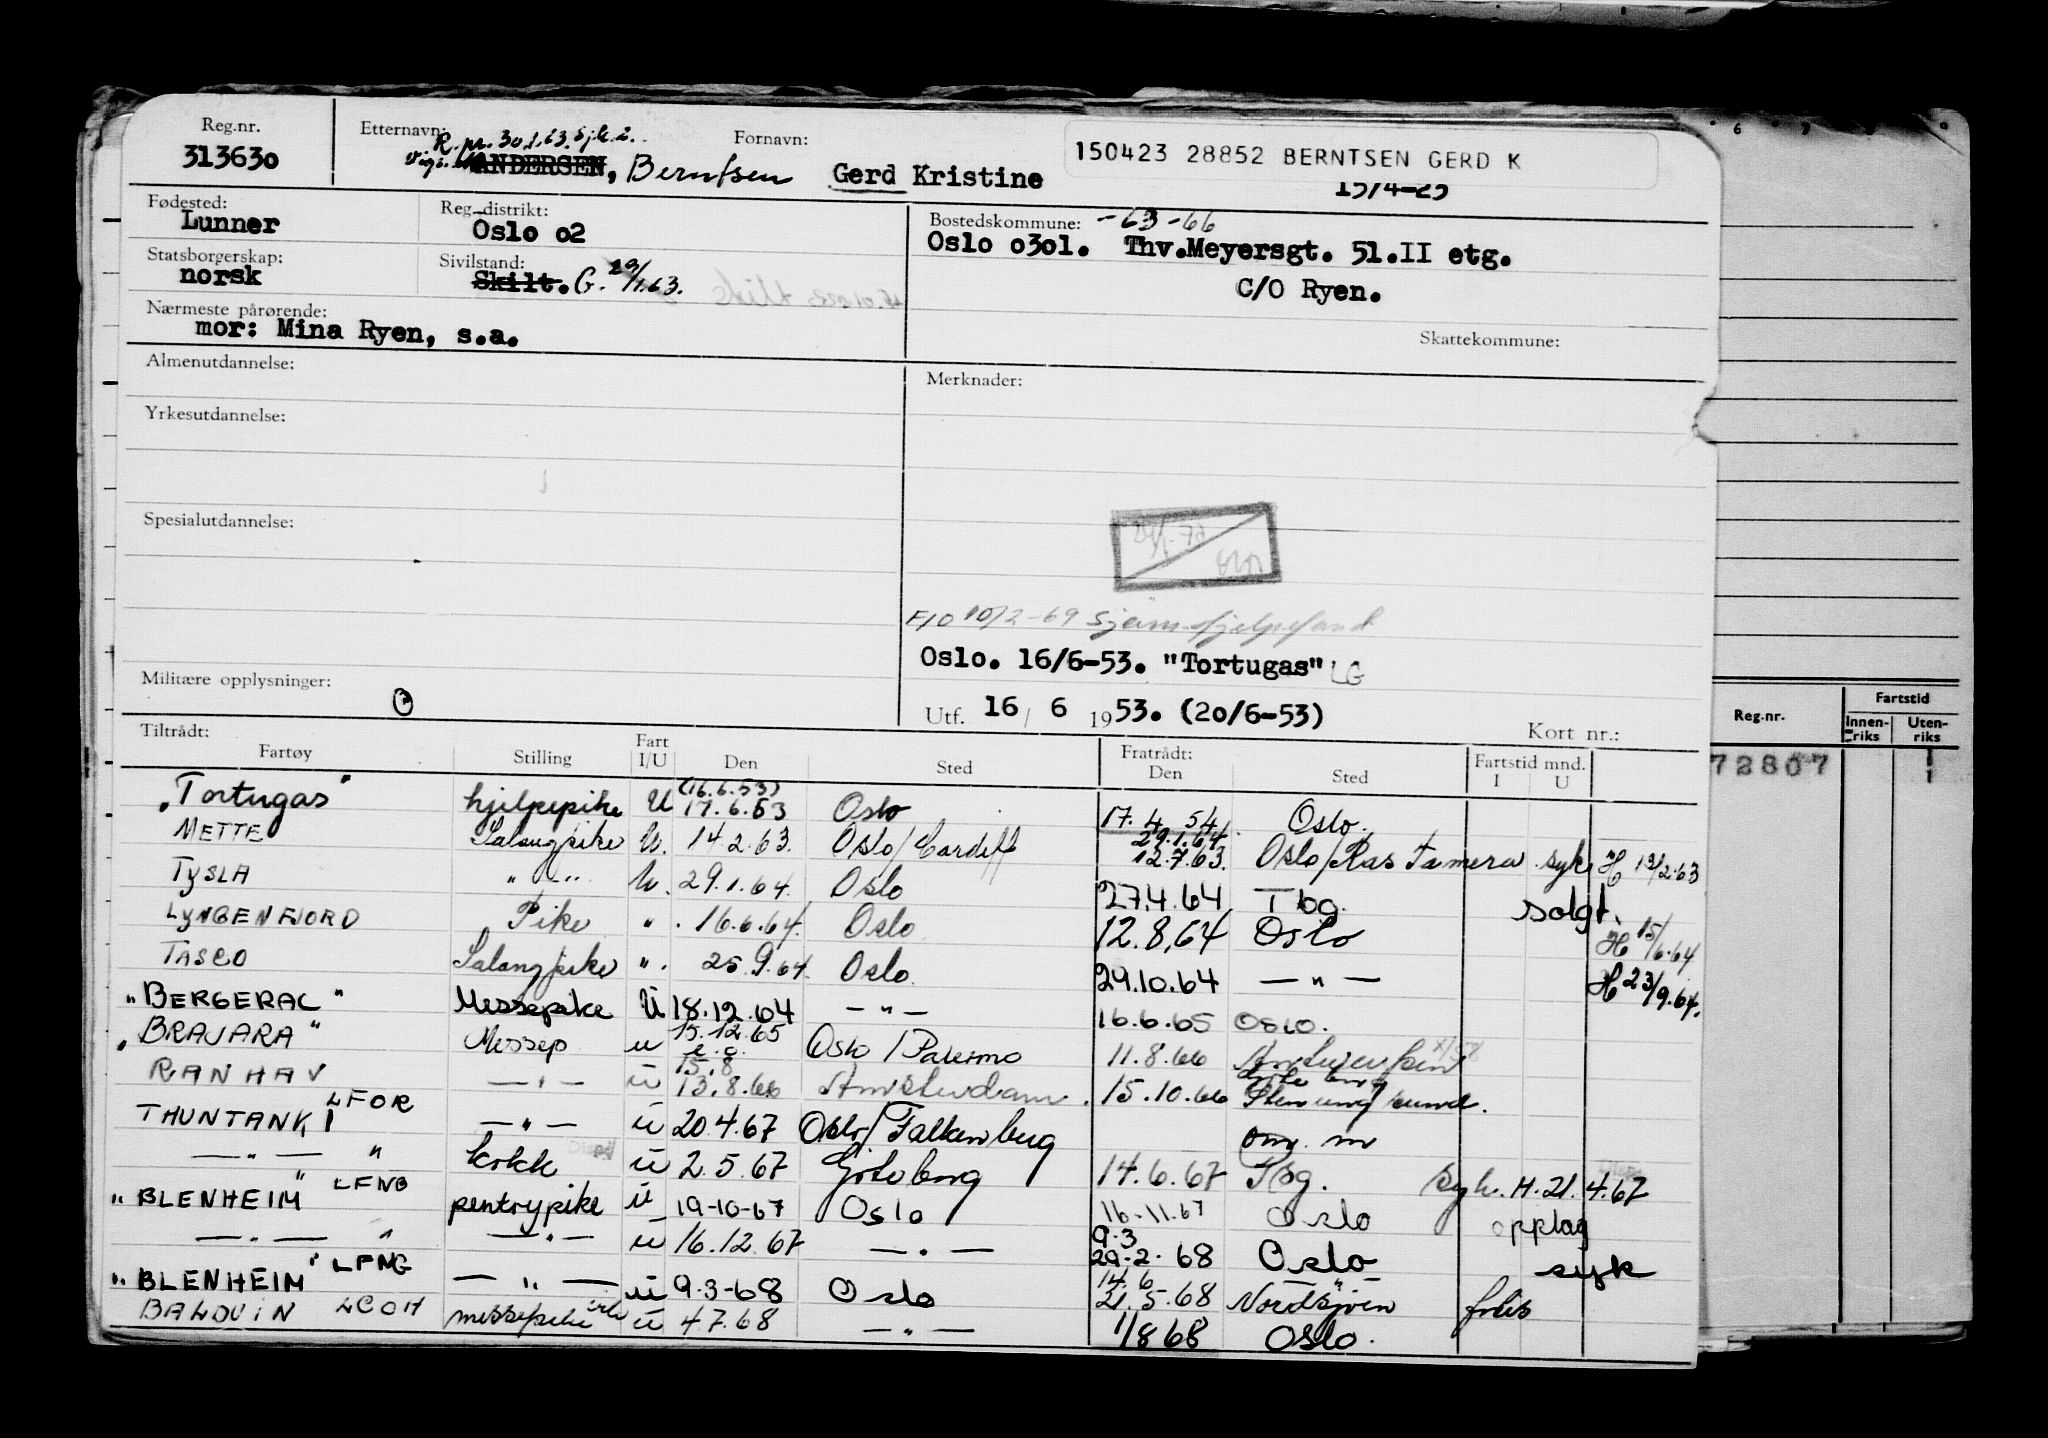 Reg.nr. Etternavn: Fornavn:
R. pr. 30.1.63. Sjk. 2.
313630 ANDERSEN, Berntsen Gerd Kristine
150423 28852 BERNTSEN GERD K
15/4-23
Fødested: Lunner
Reg.-distrikt: Oslo o2
Bostedskommune: -63-66
Oslo o3o1. Thv.Meyersgt. 51.II etg.
C/O Ryen.
Statsborgerskap: norsk
Sivilstand: Skilt. G. 29/1.63.
Nærmeste pårørende:
mor: Mina Ryen, s.a.
Skattekommune:
Almenutdannelse:
Merknader:
Yrkesutdannelse:
Spesialutdannelse:
F/O 10/2-69
Oslo. 16/6-53. "Tortugas" LG
Militære opplysninger:
Utf. 16 / 6 1953. (20/6-53)
Kort nr.:
Tiltrådt: Fratrådt:
Fartøy Stilling Fart I/U Den Sted Den Sted Fartstid mnd. I U
"Tortugas" hjelpepike U (16.6.53) 17.6.53 Oslo 17.4.54 Oslo.
METTE Salongpike U. 14.2.63. Oslo/Cardiff 29.1.64 12.7.63. Oslo/Ras Tanura syk H 13/2.63
TYSLA " -"- U. 29.1.64. Oslo 27.4.64 Tbg. solgt.
LYNGENFJORD Pike ". 16.6.64. Oslo 12.8.64 Oslo H 15/6.64
TASCO Salongpike ". 25.9.64. Oslo. 29.10.64 — " — H 23/9.64.
"BERGERAC" Messepike U 18.12.64 — " — 16.6.65 OSLO.
"BRAJARA" Messep U 15.12.65 Oslo/Palermo 11.8.66
RANHAV — " — U 15.8 13.8.66 Amsterdam. 15.10.66
THUNTANK 1 LFOR — " — U 20.4.67 Oslo/Falkenberg
— " — " kokk U 2.5.67 Göteborg 14.6.67 Syk. H. 21.4.67
"BLENHEIM" LFNG pentrypike U 19-10-67 Oslo 16-11.67 Oslo opplag
— " — " — " — U 16.12.67 — " — 9.3 29-2-68 Oslo syk
"BLENHEIM" LFNG — " — U 9.3-68 Oslo 14.6 21.5.68 Nordsjøen
BALDUIN LCOH messepike U 4.7.68 — " — 1/8 68 Oslo.
Reg.nr. Fartstid
Innen-riks Uten-riks
72807